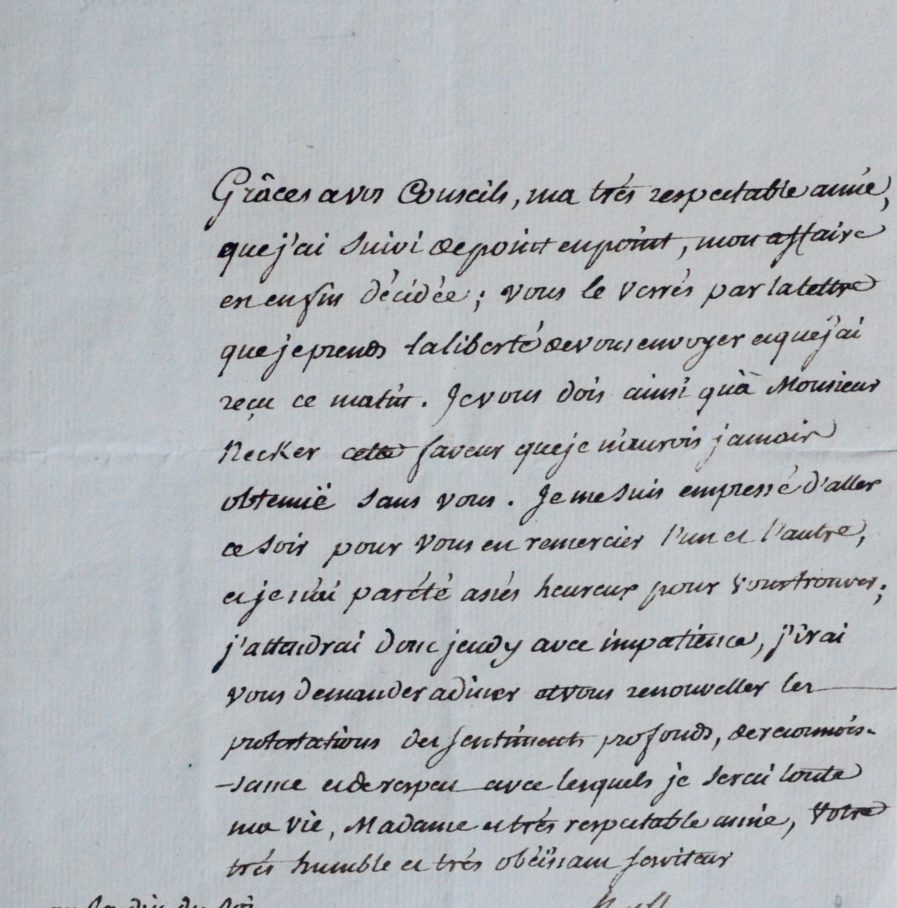 Grâces a vos Conseils, ma trés respectable amie,
que j'ai suivi de point en point, mon affaire
en enfin décidée; vous le verrés par la lettre
que je prends la liberté de vous envoyer et que j'ai
reçu ce matin. Je vous dois ainsi qu'à Monsieur
Necker cette faveur que je n'aurois jamais
obtenuë sans vous. Je me suis empressé d'aller
ce soir pour vous en remercier l'un et l'autre,
et je n'ai pas été assés heureux pour vous trouver;
j'attendrai donc jeudy avec impatience, j'irai
vous demander a diner et vous renouveller les
protestations des sentiments profonds, de reconnois-
-sance et de respect avec lesquels je serai toute
ma vie, Madame et trés respectable amie, Votre
trés humble et trés obëissant serviteur
au Jardin du Roi